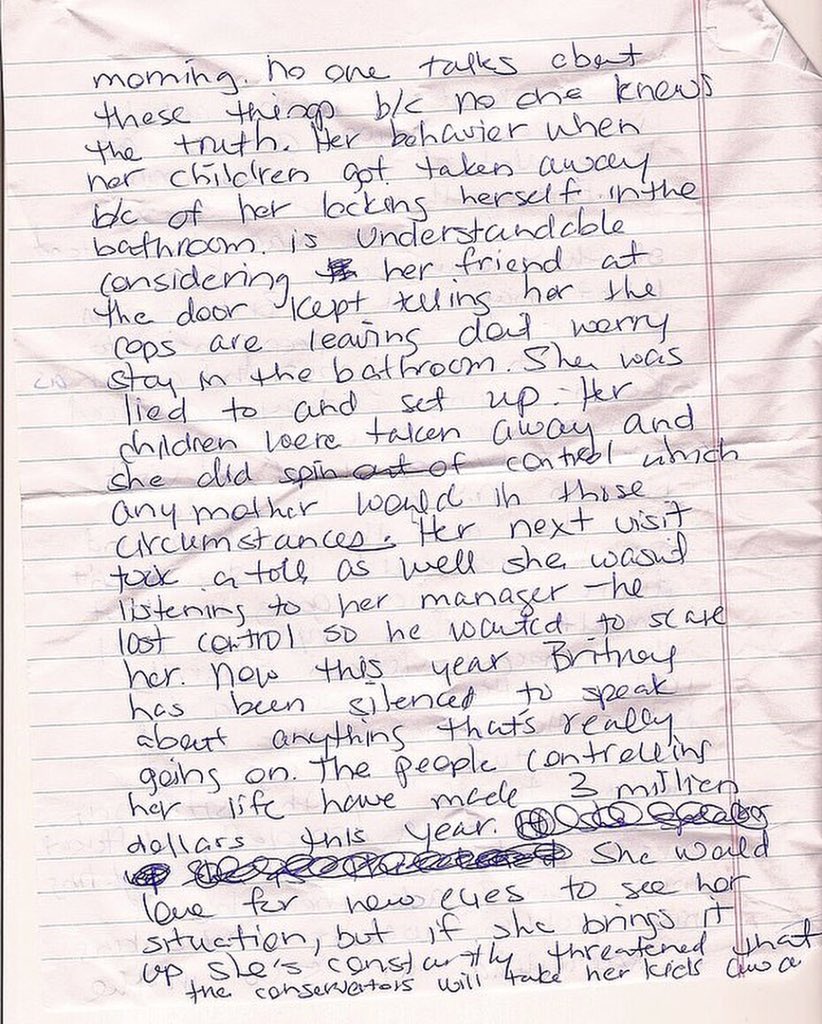 morning. no one talks about
these things b/c no one knows
the truth. Her behavior when
her children got taken away
b/c of her locking herself in the
bathroom is understandable
considering her friend at
the door kept telling her the
cops are leaving don't worry
stay in the bathroom. She was
lied to and set up. Her
children were taken away and
she did spin out of control which
any mother would in those
circumstances. Her next visit
took a toll as well she wasn't
listening to her manager - he
lost control so he wanted to scare
her. Now this year Britney
has been silenced to speak
about anything that's really
going on. The people controlling
her life have made 3 million
dollars this year.
She would
love for new eyes to see her
situation, but if she brings it
up she's constantly threatened that
the conservators will take her kids awa